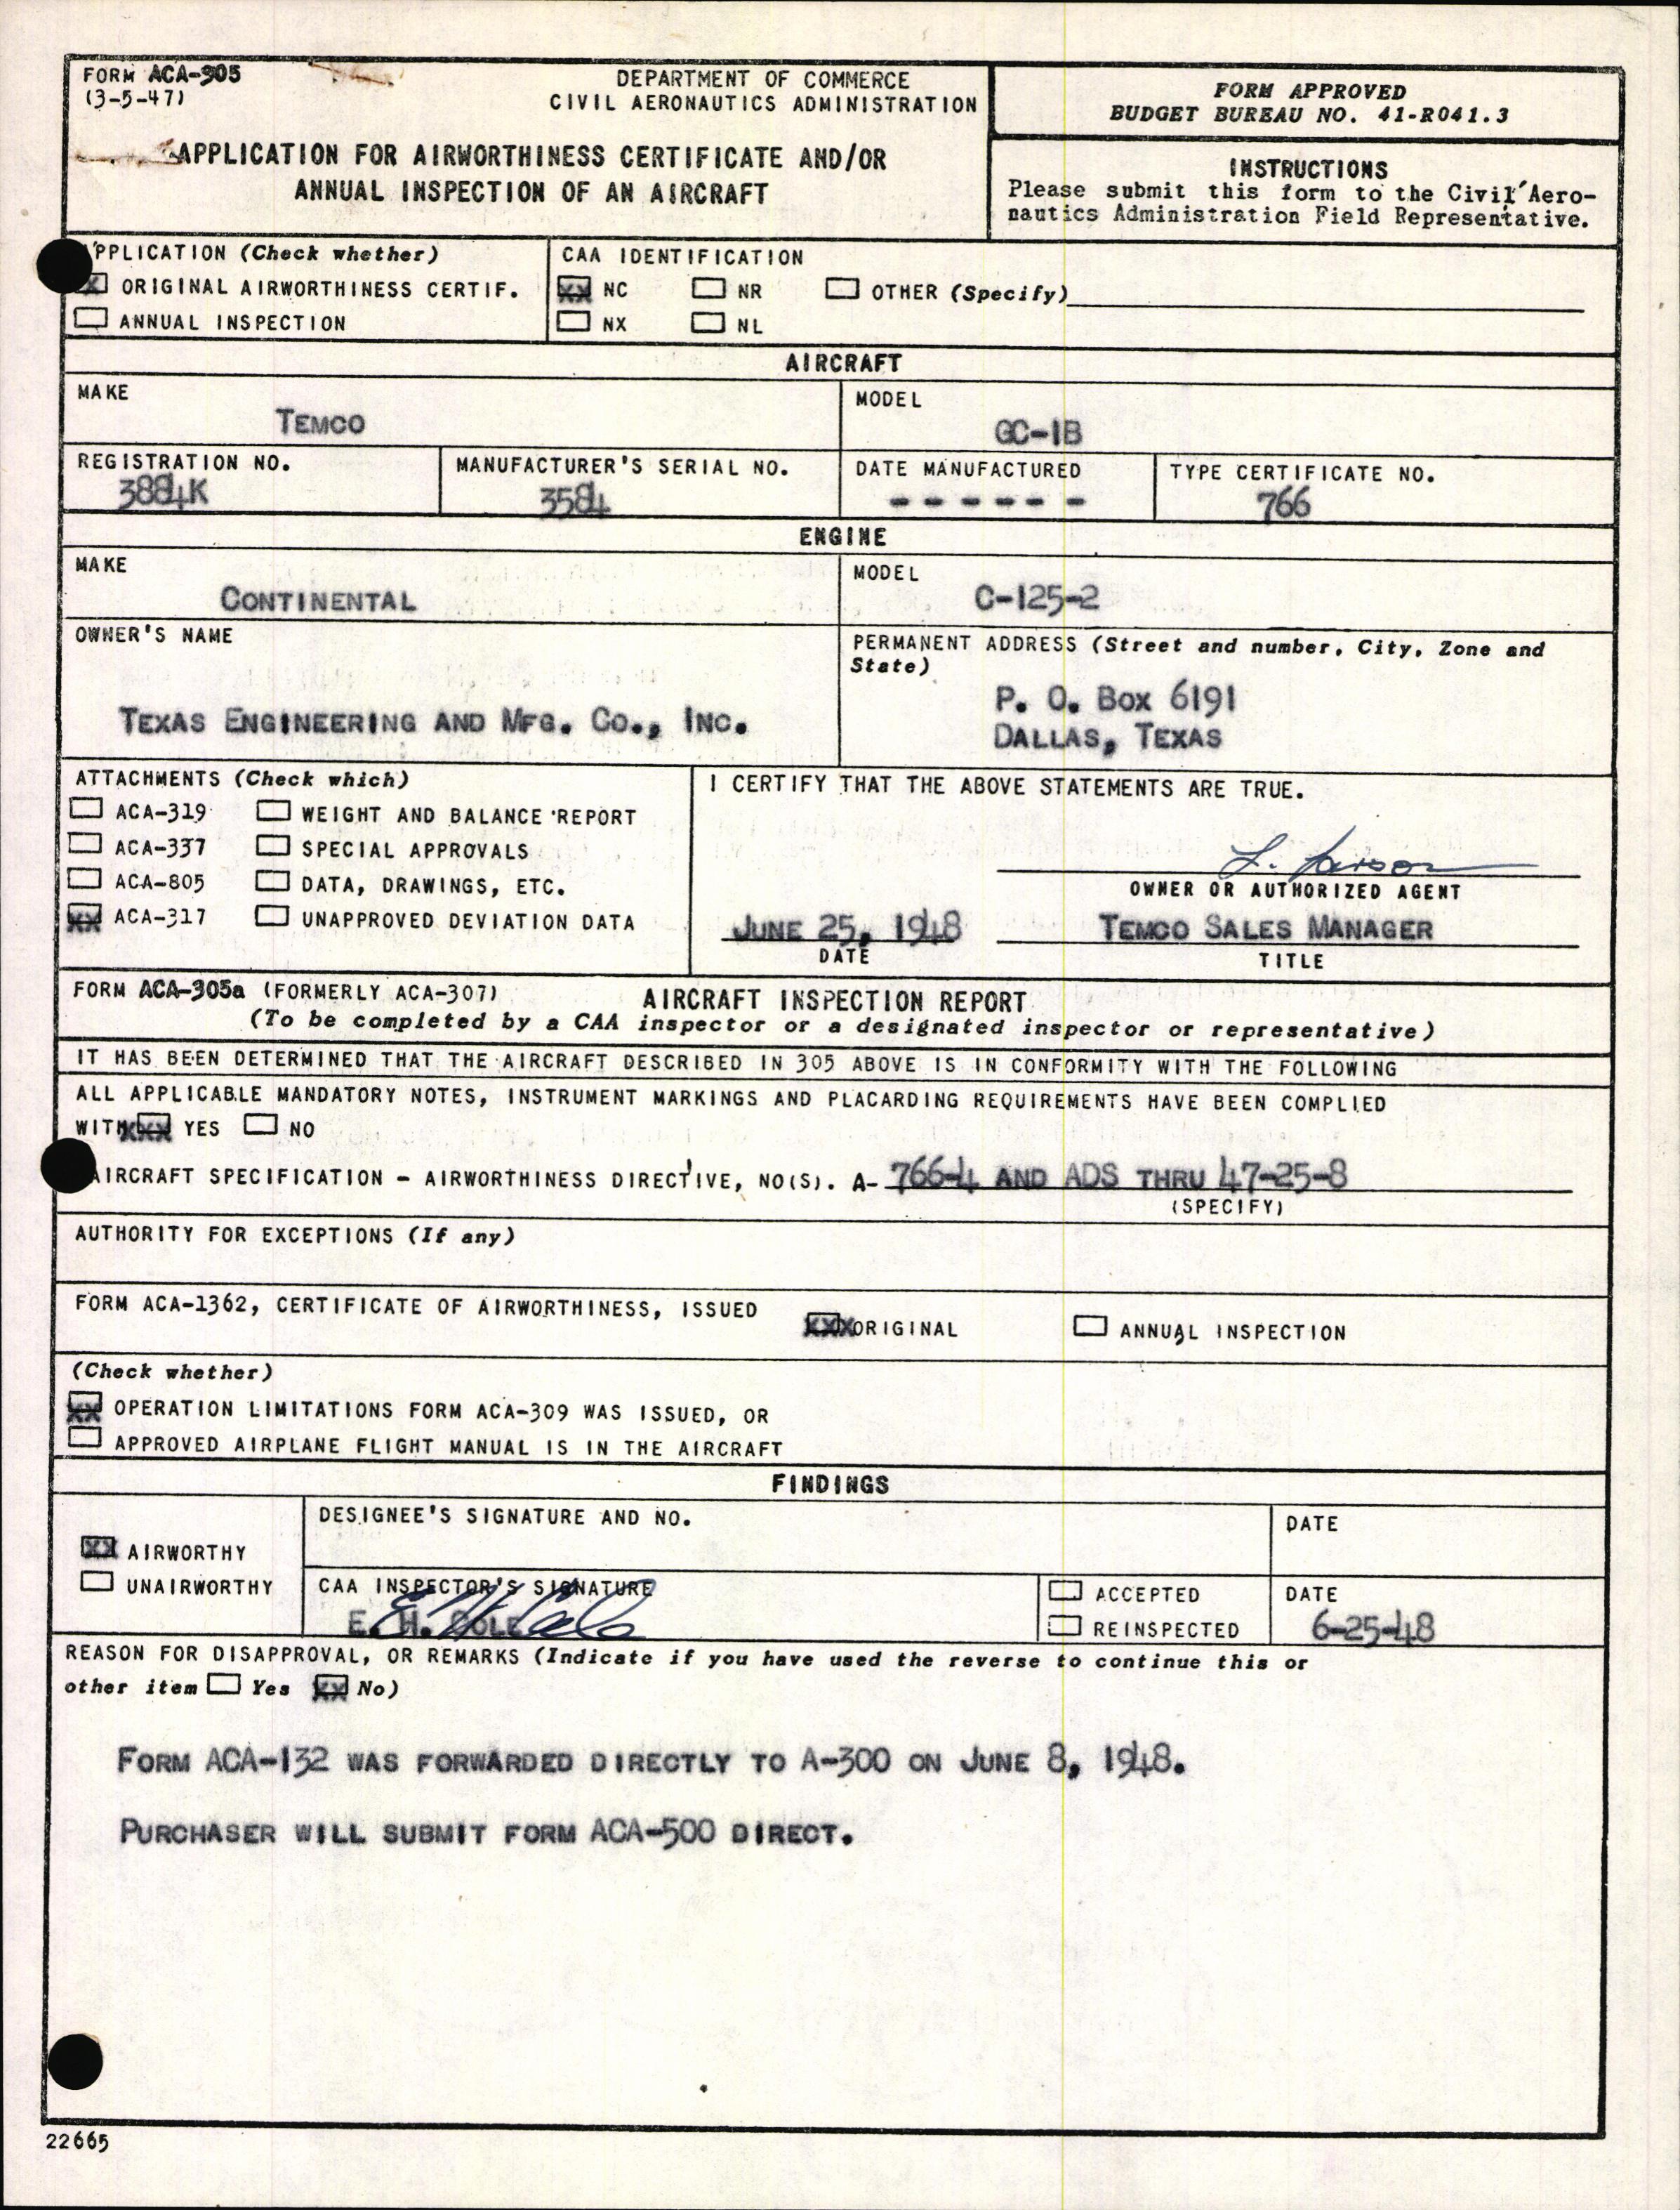 FORM ACA-305
(3-5-47)
DEPARTMENT OF COMMERCE
CIVIL AERONAUTICS ADMINISTRATION
APPLICATION FOR AIRWORTHINESS CERTIFICATE AND/OR
ANNUAL INSPECTION OF AN AIRCRAFT
FORM APPROVED
BUDGET BUREAU NO. 41-R041.3
INSTRUCTIONS
Please submit this form to the Civil Aero-
nautics Administration Field Representative.
APPLICATION (Check whether)
X ORIGINAL AIRWORTHINESS CERTIF.
ANNUAL INSPECTION
CAA IDENTIFICATION
XX NC NR OTHER (Specify)
NX NL
AIRCRAFT
MAKE
TEMCO
MODEL
GC-1B
REGISTRATION NO.
3884K
MANUFACTURER'S SERIAL NO.
3584
DATE MANUFACTURED
- - - - - -
TYPE CERTIFICATE NO.
766
ENGINE
MAKE
CONTINENTAL
MODEL
C-125-2
OWNER'S NAME
TEXAS ENGINEERING AND MFG. CO., INC.
PERMANENT ADDRESS (Street and number, City, Zone and
State)
P. O. BOX 6191
DALLAS, TEXAS
ATTACHMENTS (Check which)
ACA-319 WEIGHT AND BALANCE REPORT
ACA-337 SPECIAL APPROVALS
ACA-805 DATA, DRAWINGS, ETC.
XX ACA-317 UNAPPROVED DEVIATION DATA
I CERTIFY THAT THE ABOVE STATEMENTS ARE TRUE.
L. Larson
OWNER OR AUTHORIZED AGENT
JUNE 25, 1948
DATE
TEMCO SALES MANAGER
TITLE
FORM ACA-305a (FORMERLY ACA-307)
AIRCRAFT INSPECTION REPORT
(To be completed by a CAA inspector or a designated inspector or representative)
IT HAS BEEN DETERMINED THAT THE AIRCRAFT DESCRIBED IN 305 ABOVE IS IN CONFORMITY WITH THE FOLLOWING
ALL APPLICABLE MANDATORY NOTES, INSTRUMENT MARKINGS AND PLACARDING REQUIREMENTS HAVE BEEN COMPLIED
WITH XXX YES NO
AIRCRAFT SPECIFICATION - AIRWORTHINESS DIRECTIVE, NO(S). A- 766-4 AND ADS THRU 47-25-8
(SPECIFY)
AUTHORITY FOR EXCEPTIONS (If any)
FORM ACA-1362, CERTIFICATE OF AIRWORTHINESS, ISSUED
XXX ORIGINAL ANNUAL INSPECTION
(Check whether)
XX OPERATION LIMITATIONS FORM ACA-309 WAS ISSUED, OR
APPROVED AIRPLANE FLIGHT MANUAL IS IN THE AIRCRAFT
FINDINGS
XX AIRWORTHY
UNAIRWORTHY
DESIGNEE'S SIGNATURE AND NO.
DATE
CAA INSPECTOR'S SIGNATURE
E. H. COLE
ACCEPTED
REINSPECTED
DATE
6-25-48
REASON FOR DISAPPROVAL, OR REMARKS (Indicate if you have used the reverse to continue this or
other item Yes XX No)
FORM ACA-132 WAS FORWARDED DIRECTLY TO A-300 ON JUNE 8, 1948.
PURCHASER WILL SUBMIT FORM ACA-500 DIRECT.
22665